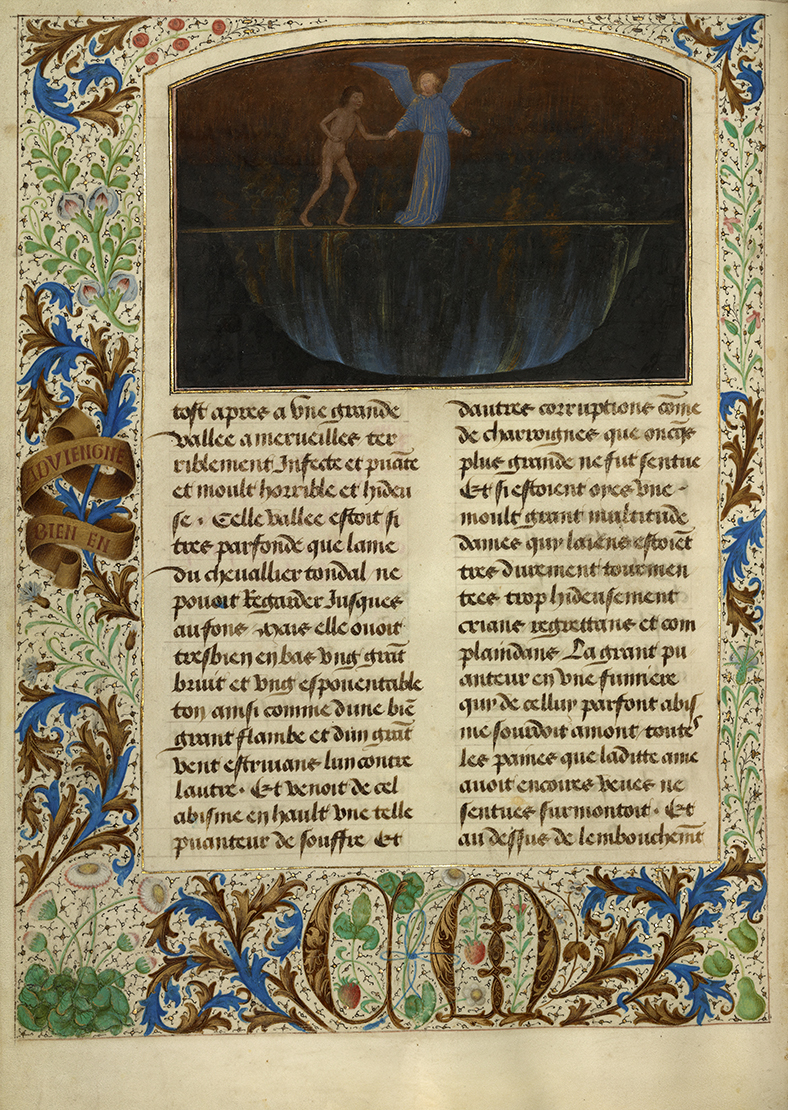 tost apres a vne grande
vallee a merueilles ter
riblement Infecte et puãte
et moult horrible et hideu
se. Celle vallee estoit si
tres parfonde que lame
du cheuallier tondal ne
pouoit Regarder Jusques
au fons Mais elle ouoit
tresbien en bas vng grãt
bruit et vng espouentable
ton ainsi comme dune biẽ
grant flambe et dun grãt
vent estriuans lun contre
lautre. Et venoit de cel
abisme en hault vne telle
puanteur de souffre Et
dautres corruptions cõme
de charoignes que oncqs
plus grande ne fut sentue
Et si estoient ores vne
moult grant multitude
dames quy laiens estoiẽt
tres durement tourmen
tees trop hideusement
crians regrettans et com
plaindans La grant pu
anteur en vne fumiere
quy de celluy parfont abis
me sourdoit amont toutes
les paines que laditte ame
auoit encoires veues ne
sentues surmontoit. Et
au dessus de lembouchemẽt
ADVIENGNE
BIEN EN
C M